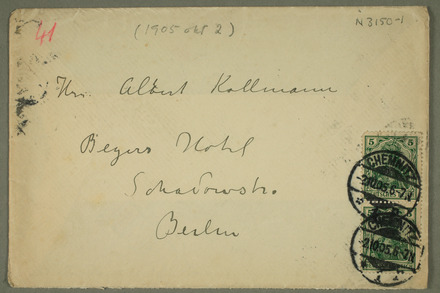 41
(1905 okt 2)
N 3150-1
Hrr Albert Kollmann
Beyers Hotel
Schadowstr.
Berlin
5 5
CHEMNITZ
-2.10.05.6-7N
5 5
CHEMNITZ
-2.10.05.6-7N